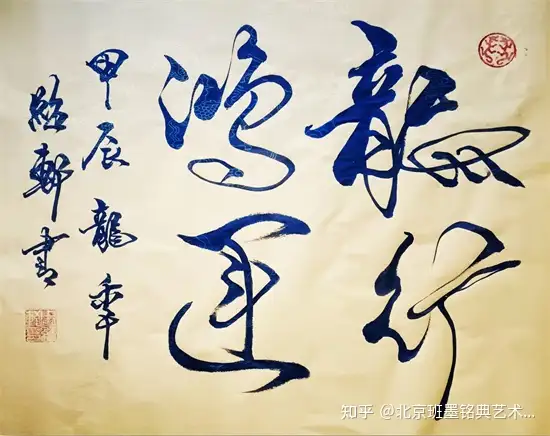 龍行
鴻運
甲辰龍年
書
知乎 @北京班墨铭典艺术...